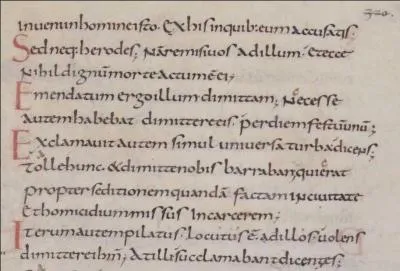 320.
inueni in homine isto. Ex his in quib: eum accusatis.
Sed neq: herodes; Nā remisi uos ad illum. Et ecce
Nihil dignū morte actum ē ei;
Emendatum ergo illum dimittam; Necesse
autem habebat dimittere eis. per diem festū unū;
Exclamauit autem simul uniuersa turba dicens;
Tolle hunc. & dimitte nobis barraban; qui erat
propter seditionem quandā factam in ciuitate
et homicidium missus in carcerem;
Iterum autem pilatus locutus ē ad illos. uolens
dimittere ihm; At illi succlamabant dicentes;